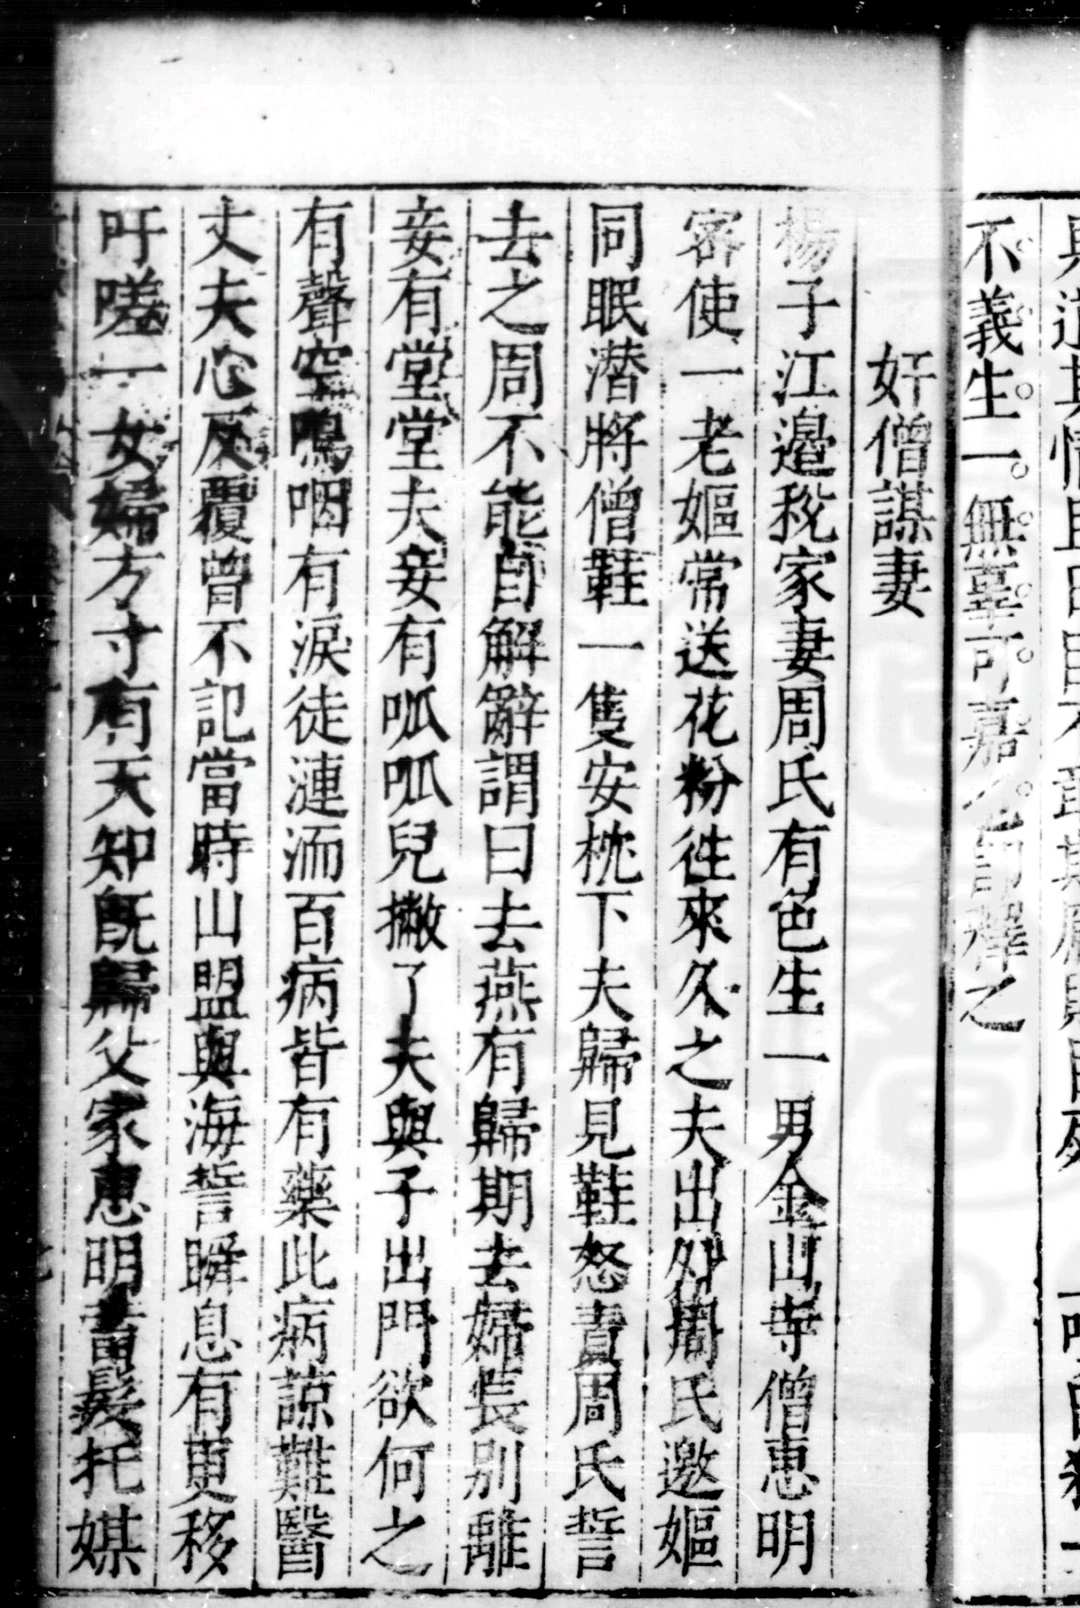 不義生一無辜可嘉
之
奸僧謀妻
楊子江邉稅家妻周氏有色生一男金山寺僧惠明
密使一老嫗常送花粉徃來久之夫出外周氏邀嫗
同眠潜將僧鞋一隻安枕下夫歸見鞋怒責周氏誓
去之周不能自解辭謂曰去燕有歸期去婦長别離
妾有堂堂夫妾有呱呱兒撇了夫與子出門欲何之
有聲空嗚咽有淚徒漣洏百病皆有藥此病諒難醫
丈夫心反覆曾不記當時山盟與海誓瞬息有更移
吁嗟一女婦方寸有天知旣歸父家惠明蓄髮托媒